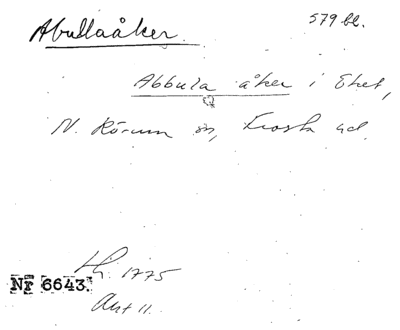 Abullaåker.
579 bl.
Abbula åker i Eket,
N. Rörum sn, Frosta hd.
Lh. 1775
Nr 6643.
Akt 11.